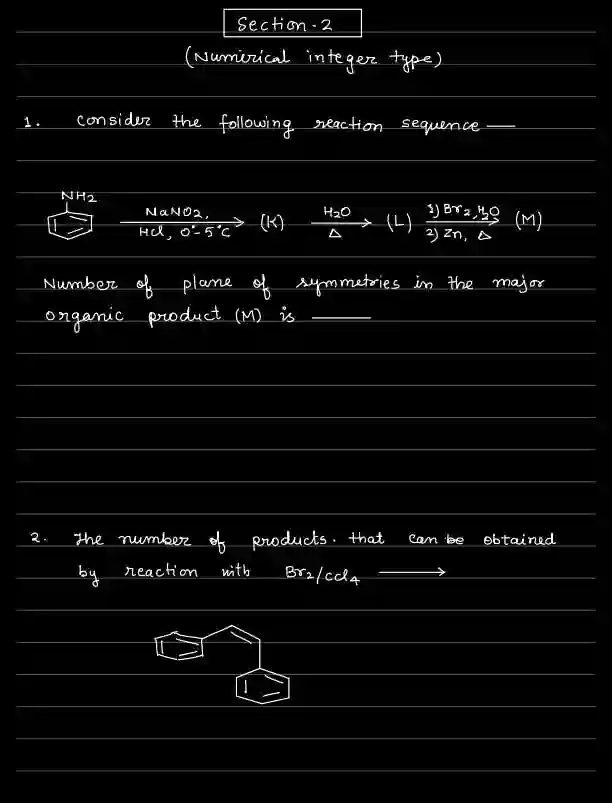 Section-2
(Numerical integer type)
1. Consider the following reaction sequence —
NH2
NaNO2,
HCl, 0°-5°C
(K)
H2O
Δ
(L)
1) Br2, H2O
2) Zn, Δ
(M)
Number of plane of symmetries in the major
organic product (M) is ____
2. The number of products. that can be obtained
by reaction with Br2/CCl4 ⟶